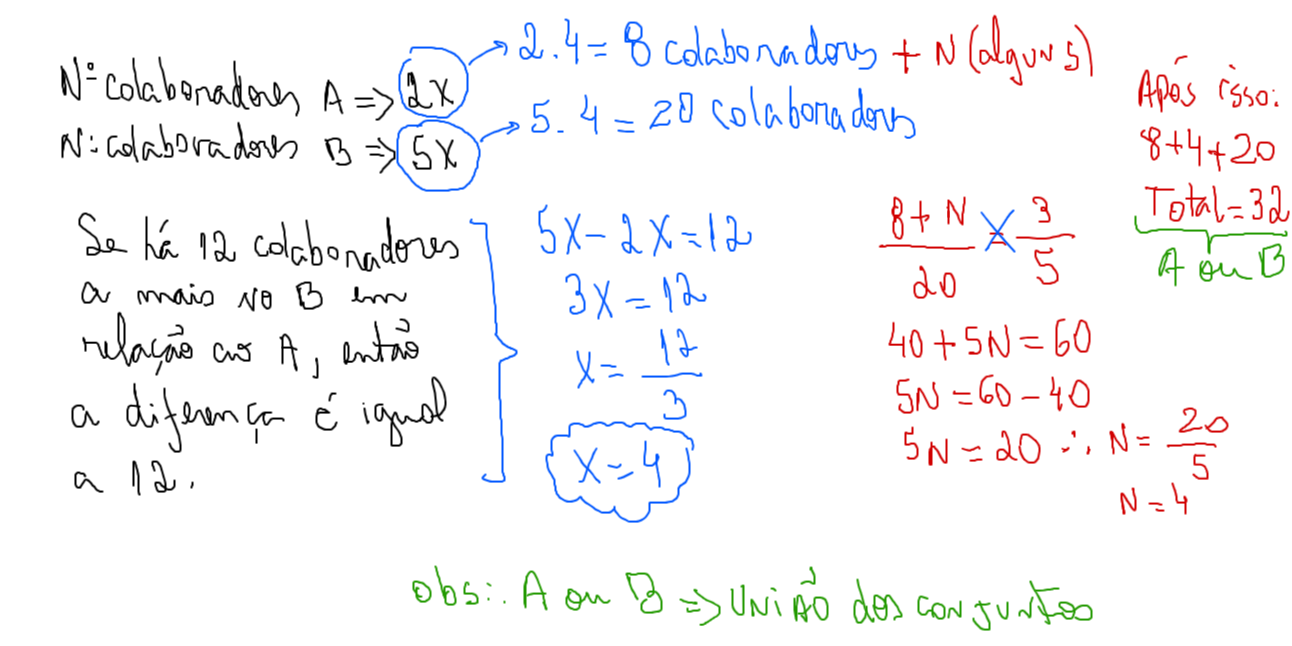 Nº colaboradores A => 2x
2.4 = 8 colaboradores + N (alguns)
Nº colaboradores B => 5x
5.4 = 20 colaboradores
Se há 12 colaboradores
a mais no B em
relação aos A, então
a diferença é igual
a 12.
5x - 2x = 12
3x = 12
x = 12/3
x = 4
(8 + N)/20 = 3/5
40 + 5N = 60
5N = 60 - 40
5N = 20 ∴ N = 20/5
N = 4
Após isso:
8+4+20
Total = 32
A ou B
obs:. A ou B => União dos conjuntos